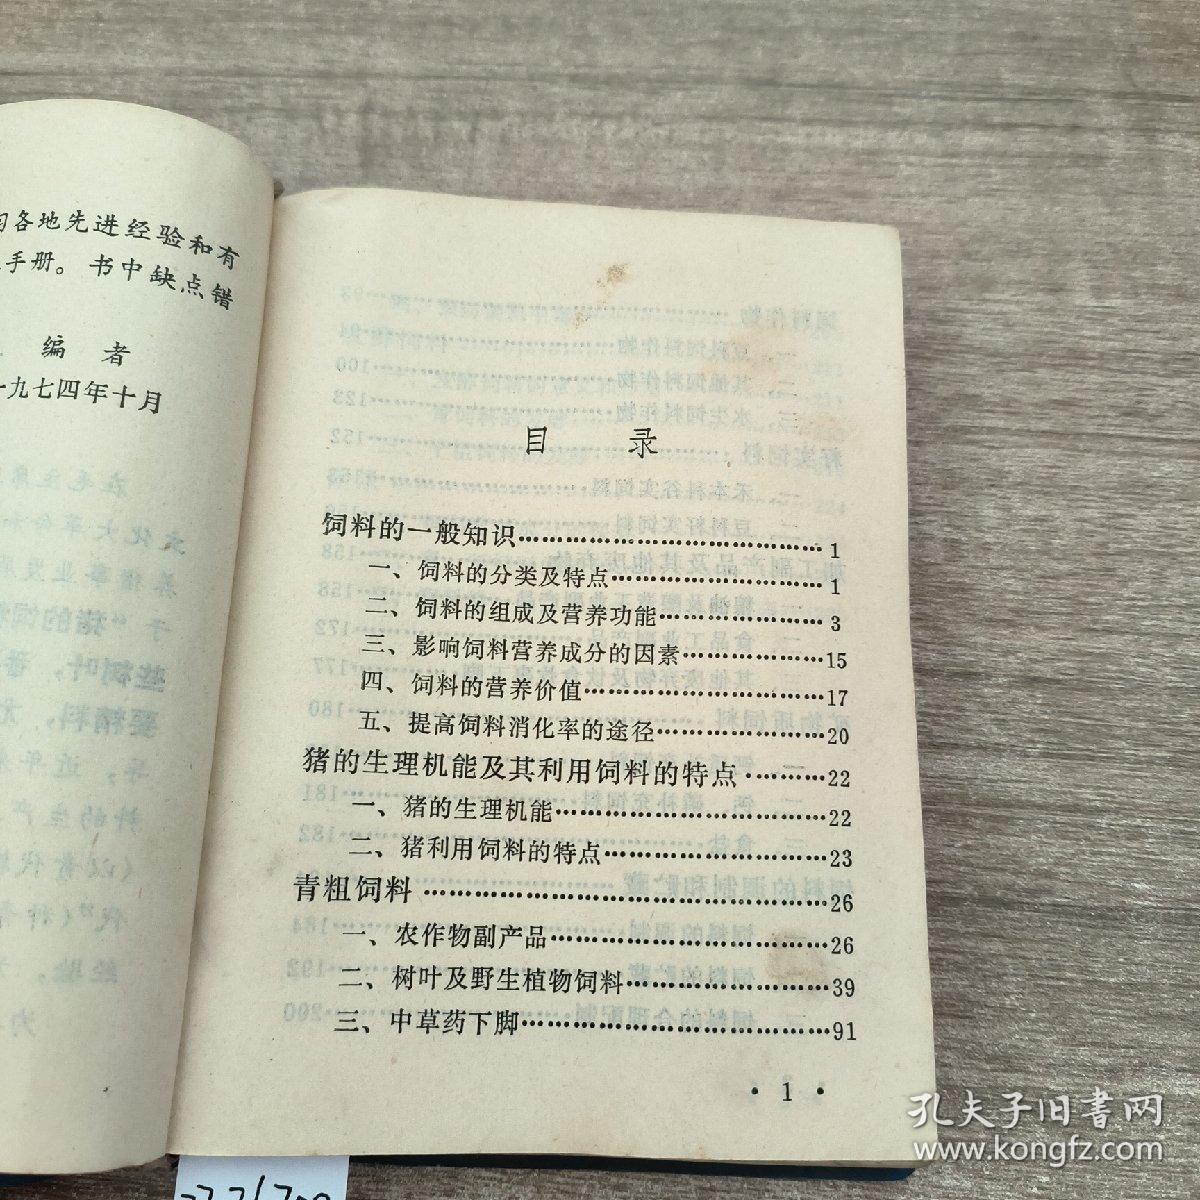 各地先进经验和有
手册。书中缺点错
编者
一九七四年十月
目录
饲料的一般知识……………………………1
一、饲料的分类及特点……………………1
二、饲料的组成及营养功能………………3
三、影响饲料营养成分的因素……………15
四、饲料的营养价值………………………17
五、提高饲料消化率的途径………………20
猪的生理机能及其利用饲料的特点………22
一、猪的生理机能…………………………22
二、猪利用饲料的特点……………………23
青粗饲料……………………………………26
一、农作物副产品…………………………26
二、树叶及野生植物饲料…………………39
三、中草药下脚……………………………91
·1·
孔夫子旧书网
www.kongfz.com